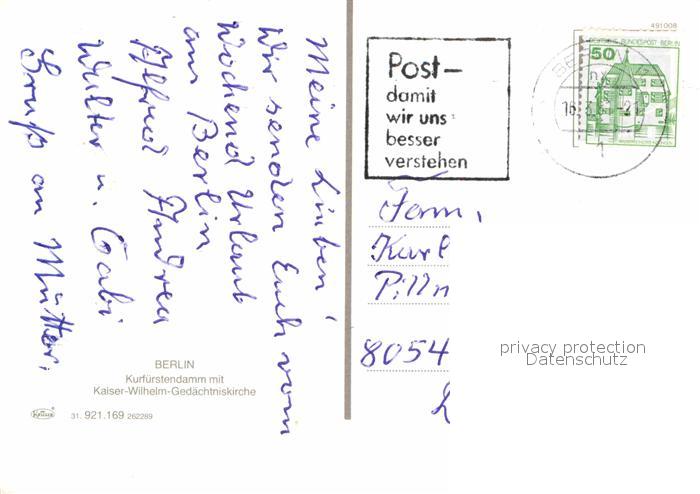 Meine Lieben!
Wir senden Euch vom
Wochend Urlaub
aus Berlin
Alfred Andrea
Walter u. Gabi
Gruß an Mutter.
BERLIN
Kurfürstendamm mit
Kaiser-Wilhelm-Gedächtniskirche
Krüger
31. 921.169 262289
491008
Post-
damit
wir uns
besser
verstehen
BERLIN
DEUTSCHE BUNDESPOST BERLIN
50
Fam.
Karl
8054
privacy protection
Datenschutz